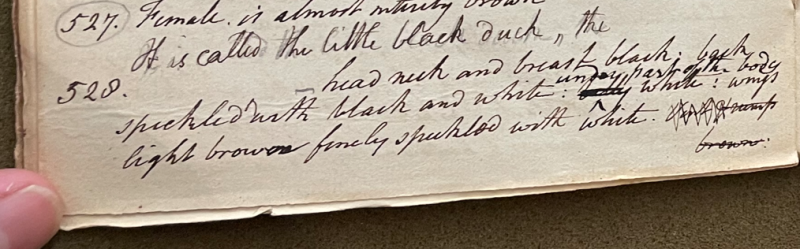 527. Female. is almost entirely brown
It is called the little black duck, the
528. — head neck and breast black: back
speckled with black and white: under part of the body white: wings
light brown finely speckled with white. rump
brown.